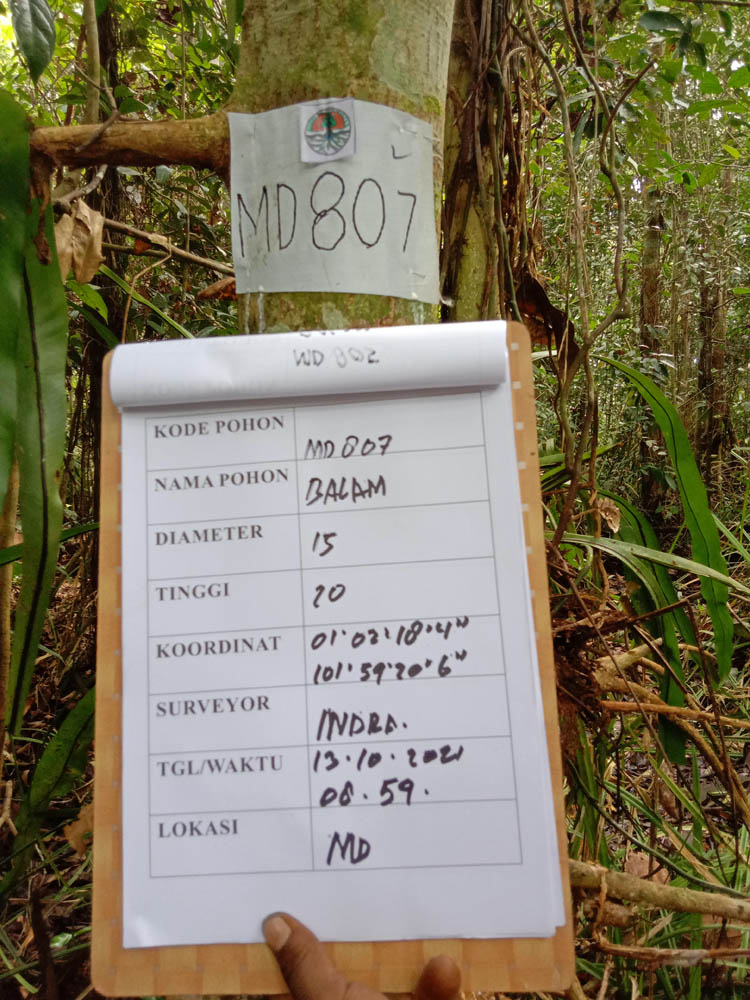 MD807
MD 802
KODE POHON MD807
NAMA POHON BALAM
DIAMETER 15
TINGGI 20
KOORDINAT 01°02'18.4"
101°59'20.6"
SURVEYOR INDRA.
TGL/WAKTU 13.10.2021
08.59.
LOKASI MD